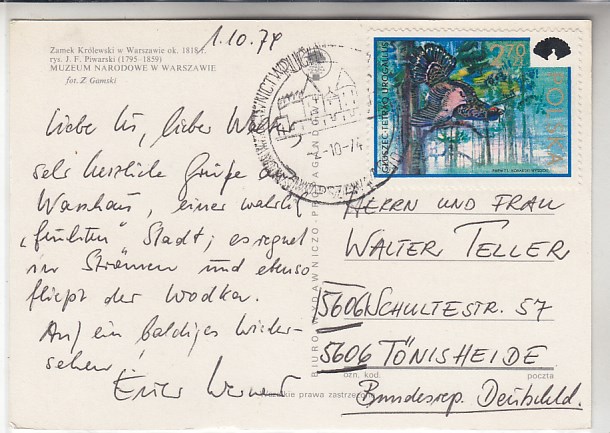 Zamek Królewski w Warszawie ok. 1818 r.
rys. J. F. Piwarski (1795-1859)
MUZEUM NARODOWE W WARSZAWIE
fot. Z Gamski
1.10.74
2,70 ZŁ
POLSKA
GŁUSZEC-TETRAO UROGALLUS
-10-74
Liebe Us, lieber
sehr herzliche Grüße aus
Warschau, einer wahrlich
„feuchten" Stadt; es regnet
in Strömen und ebenso
fließt der Wodka.
Auf ein baldiges Wieder-
sehen!
Euer Werner
BIURO WYDAWNICZO-PROPAGANDOWE
HERRN UND FRAU
WALTER TELLER
5606 SCHULTESTR. 57
5606 TÖNISHEIDE
ozn. kod. poczta
Bundesrep. Deutschld.
Wszelkie prawa zastrzeżone